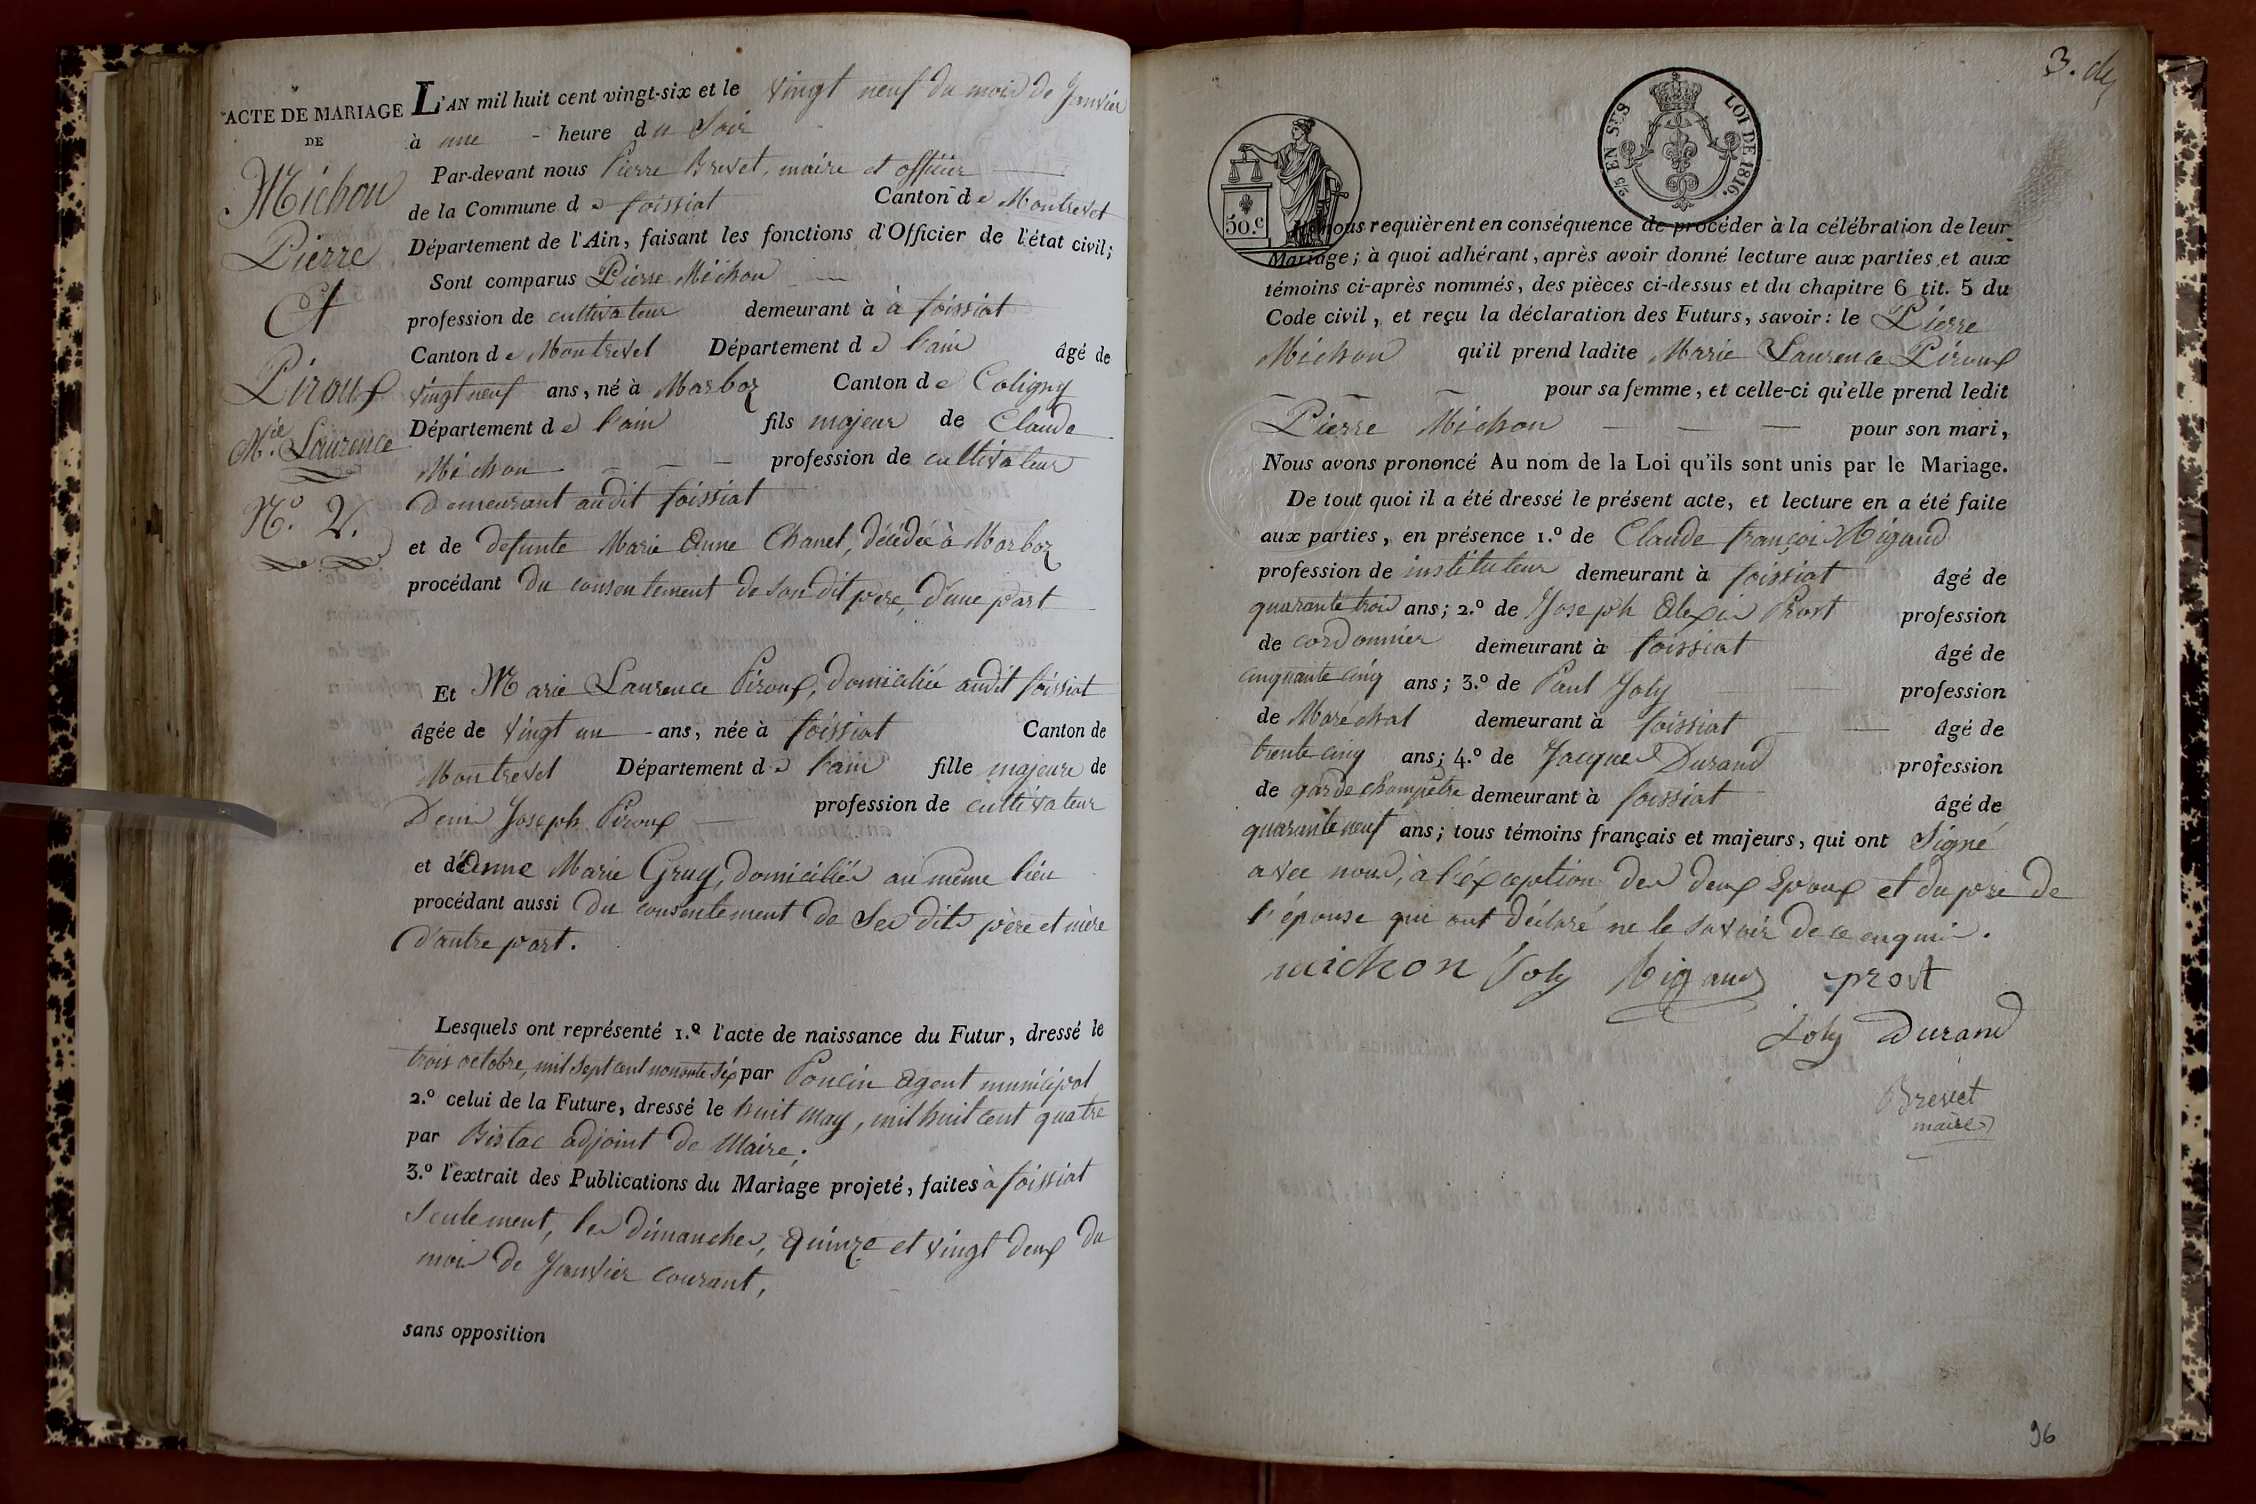 ACTE DE MARIAGE
DE
Michon
Pierre
Et
Piroux
M.ie Laurence
N.o 2.
L'AN mil huit cent vingt-six et le vingt neuf du mois de Janvier
à une - heure du Soir
Par-devant nous Pierre Brevet, maire et officier
de la Commune de foissiat Canton de Montrevel
Département de l'Ain, faisant les fonctions d'Officier de l'état civil;
Sont comparus Pierre Michon
profession de cultivateur demeurant à à foissiat
Canton de Montrevel Département de l'ain âgé de
vingt neuf ans, né à Marboz Canton de Coligny
Département de l'ain fils majeur de Claude
Michon - - - profession de cultivateur
Demeurant audit foissiat
et de defunte Marie Anne Chanel, décédée à Marboz
procédant du consentement de son dit père, d'une part
Et Marie Laurence Piroux, domiciliée audit foissiat
âgée de vingt un - ans, née à foissiat Canton de
Montrevel Département de l'ain fille majeure de
Denis Joseph Piroux profession de cultivateur
et d'Anne Marie Gruy, domiciliés au même lieu
procédant aussi du consentement de Ses dits père et mère
d'autre part.
Lesquels ont représenté 1.o l'acte de naissance du Futur, dressé le
trois octobre, mil sept cent nonante six par Poncin agent municipal
2.o celui de la Future, dressé le huit may, mil huit cent quatre
par adjoint de Maire;
3.o l'extrait des Publications du Mariage projeté, faites à foissiat
Seulement, les dimanches, quinze et vingt deux du
mois de Janvier courant,
sans opposition
3. 
25 EN SUS LOI DE 1816.
50.c
nous requièrent en conséquence de procéder à la célébration de leur
Mariage; à quoi adhérant, après avoir donné lecture aux parties et aux
témoins ci-après nommés, des pièces ci-dessus et du chapitre 6 tit. 5 du
Code civil, et reçu la déclaration des Futurs, savoir: le Pierre
Michon qu'il prend ladite Marie Laurence Piroux
- - - pour sa femme, et celle-ci qu'elle prend ledit
Pierre Michon - - - pour son mari,
Nous avons prononcé Au nom de la Loi qu'ils sont unis par le Mariage.
De tout quoi il a été dressé le présent acte, et lecture en a été faite
aux parties, en présence 1.o de Claude françois Rigaud
profession de instituteur demeurant à foissiat âgé de
quarante trois ans; 2.o de Joseph Alexis Prost profession
de cordonnier demeurant à foissiat âgé de
cinquante cinq ans; 3.o de Paul Joly profession
de Maréchal demeurant à foissiat âgé de
trente cinq ans; 4.o de Jacques Durand profession
de garde champêtre demeurant à foissiat âgé de
quarante neuf ans; tous témoins français et majeurs, qui ont Signé
avec nous, à l'éxception des deux Epoux et du père de
l'épouse qui ont déclaré ne le savoir de ce enquis.
michon Joly Rigaud prost
Joly Durand
Brevet
maire
96